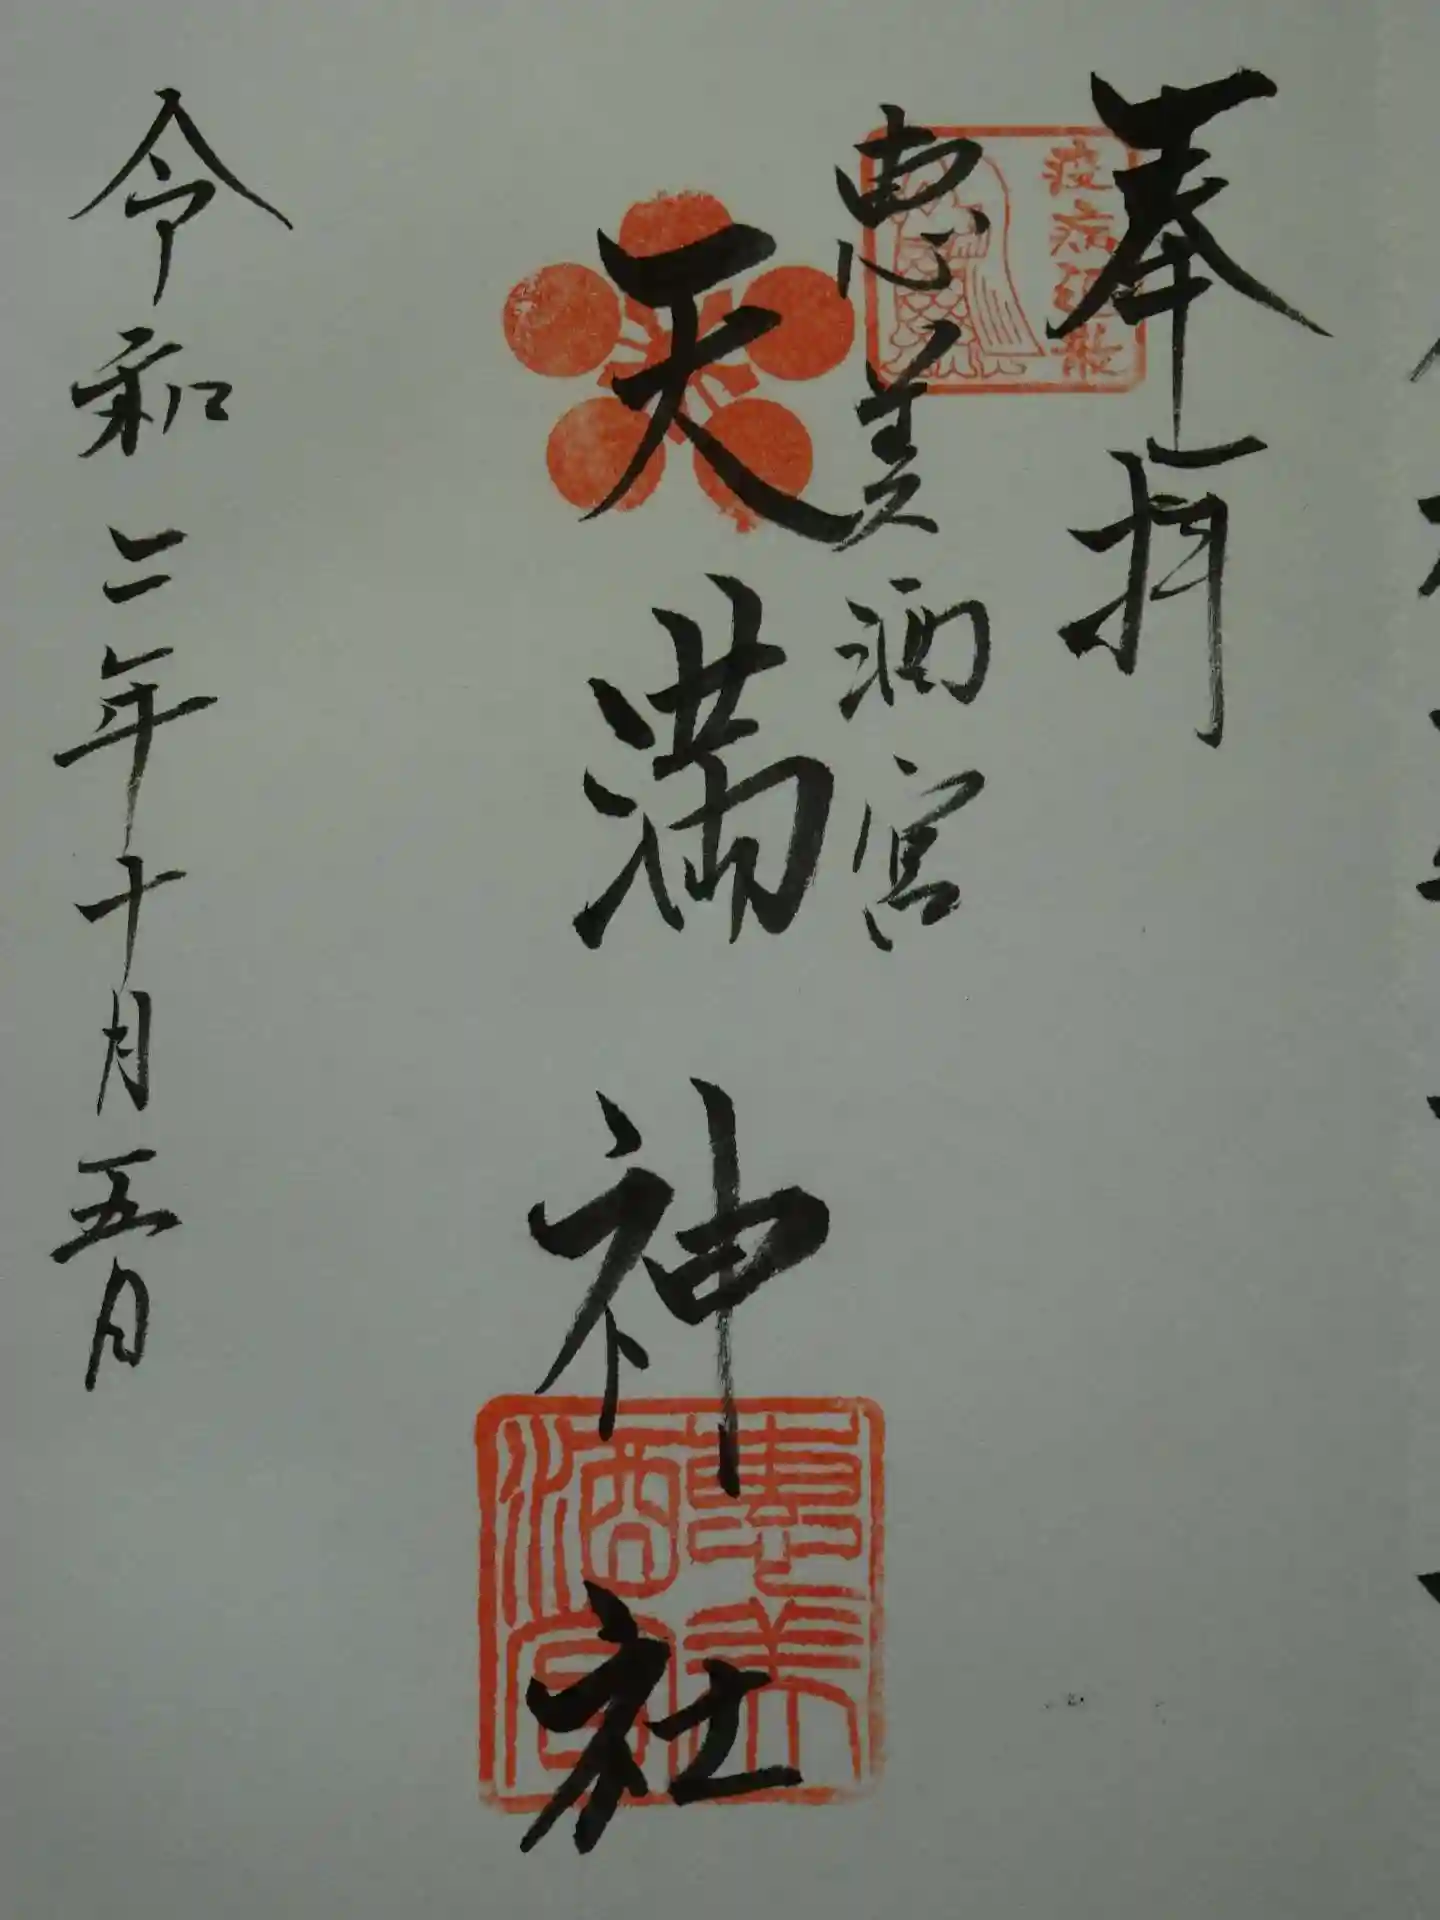 奉拝
疫病退散
恵美酒宮
天満神社
令和二年十月五日
恵美酒宮